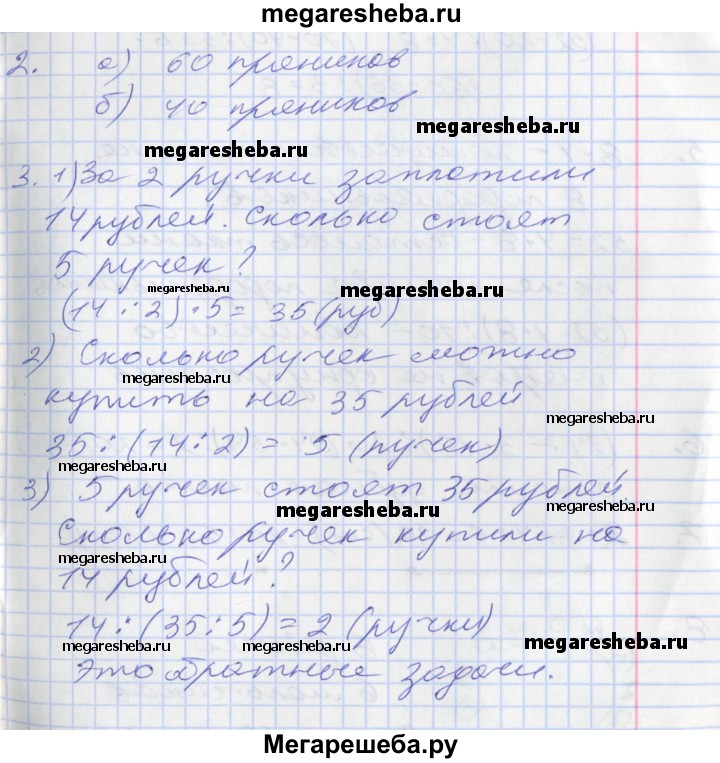 megaresheba.ru
2. а) 60 пряников
б) 40 пряников
megaresheba.ru
megaresheba.ru
3. 1) За 2 ручки заплатили
megaresheba.ru
14 рублей. Сколько стоят
megaresheba.ru
5 ручек?
megaresheba.ru
(14 : 2) · 5 = 35 (руб)
2) Сколько ручек можно
megaresheba.ru
купить на 35 рублей
megaresheba.ru
35 : (14 : 2) = 5 (ручек)
megaresheba.ru
3) 5 ручек стоят 35 рублей.
megaresheba.ru
megaresheba.ru
Сколько ручек купили на
megaresheba.ru
14 рублей?
14 : (35 : 5) = 2 (ручки)
megaresheba.ru
megaresheba.ru
megaresheba.ru
Это обратные задачи.
Мегарешеба.ру